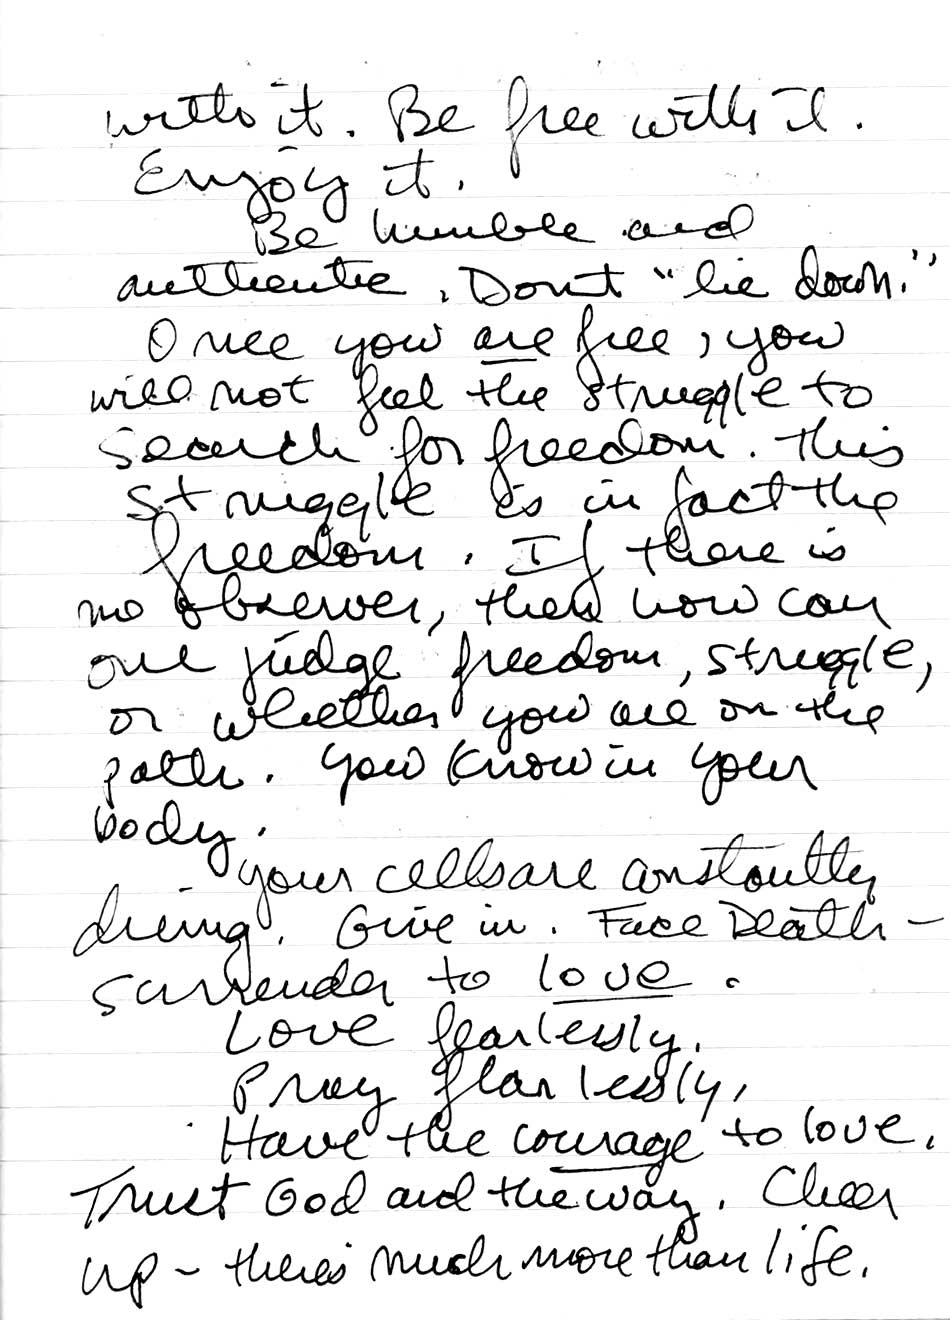 with it. Be free with it.
Enjoy it.
Be humble and
authentic. Don't "lie down."
Once you are free, you
will not feel the struggle to
search for freedom. This
struggle is in fact the
freedom. If there is
no observer, then how can
one judge freedom, struggle,
or whether you are on the
path. You know in your
body.
Your cells are constantly
dieing. Give in. Face Death –
surrender to love.
Love fearlessly.
Pray fearlessly,
Have the courage to love.
Trust God and the way. Cheer
up – there's much more than life.